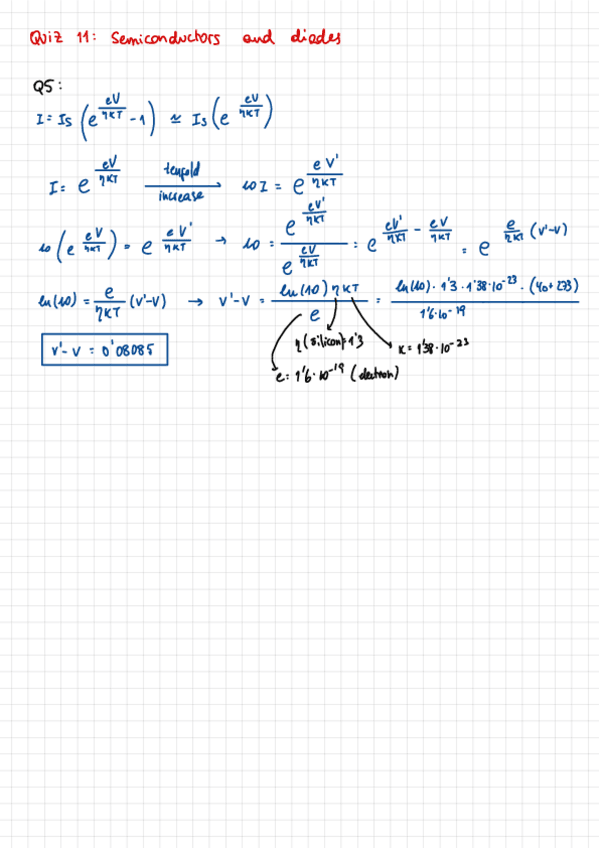 Quiz 11: Semiconductors and diodes
Q5:
I = Is (e^(eV/ηKT) - 1) ≃ Is (e^(eV/ηKT))
I = e^(eV/ηKT) tenfold increase → 10 I = e^(eV'/ηKT)
10 (e^(eV/ηKT)) = e^(eV'/ηKT) → 10 = e^(eV'/ηKT) / e^(eV/ηKT) = e^(eV'/ηKT - eV/ηKT) = e^(e/ηKT (V'-V))
ln(10) = e/ηKT (V'-V) → V'-V = ln(10) ηKT / e = ln(10) · 1'3 · 1'38·10^-23 · (40+273) / 1'6·10^-19
η (silicon) = 1'3
K = 1'38·10^-23
V'-V = 0'08085
e = 1'6·10^-19 (electron)